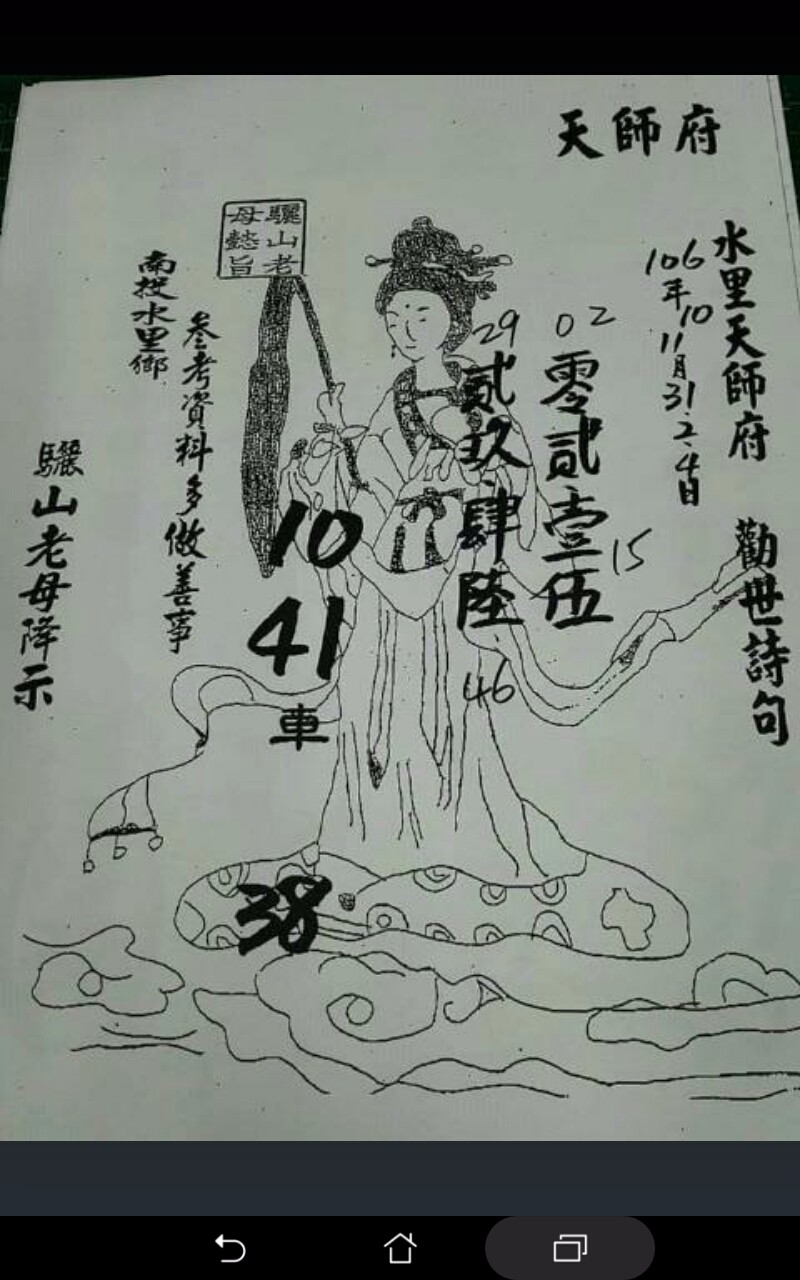 天師府
水里天師府 勸世詩句
106年10 11月31.2.4日
02
零貳壹伍
15
29
貳玖肆陸
46
驪山老
母懿旨
10
41
車
38
參考資料多做善事
南投水里鄉
驪山老母降示